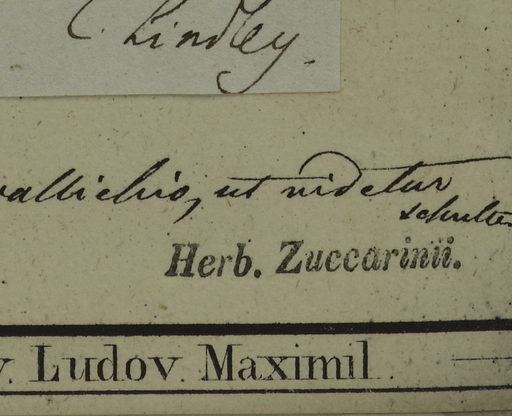 C. Lindley.
wallichio, ut videtur
schultes
Herb. Zuccarinii.
v. Ludov. Maximil